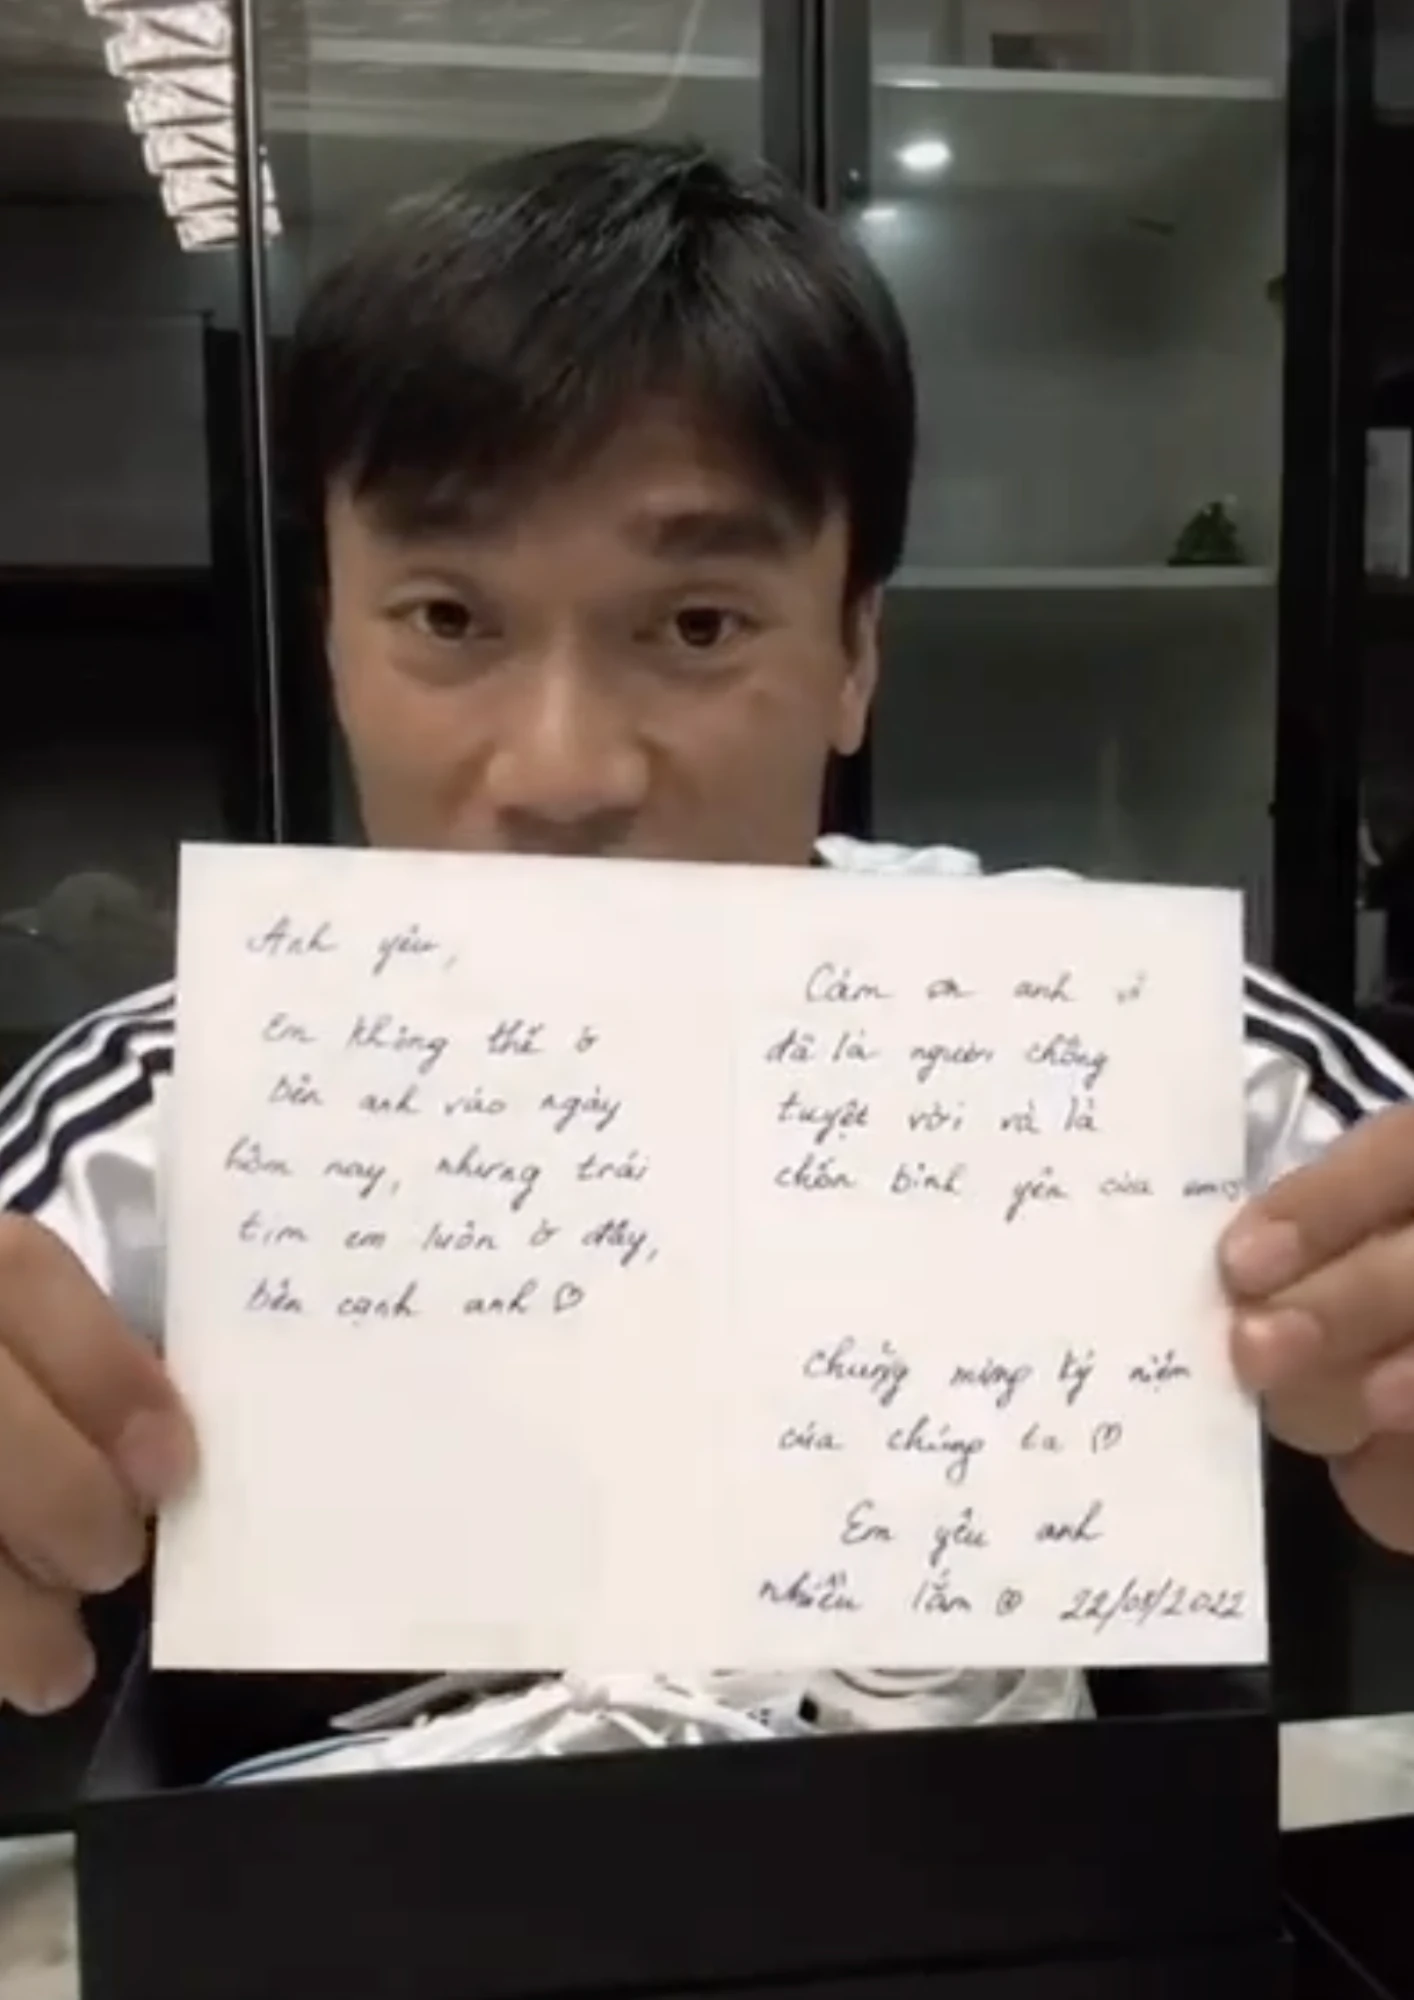 Anh yêu,
Em không thể ở
bên anh vào ngày
hôm nay, nhưng trái
tim em luôn ở đây,
bên cạnh anh ♡
Cám ơn anh vì
đã là người chồng
tuyệt vời và là
chốn bình yên của em
chúng mừng kỷ niệm
của chúng ta ♡
Em yêu anh
nhiều lắm 22/08/2022